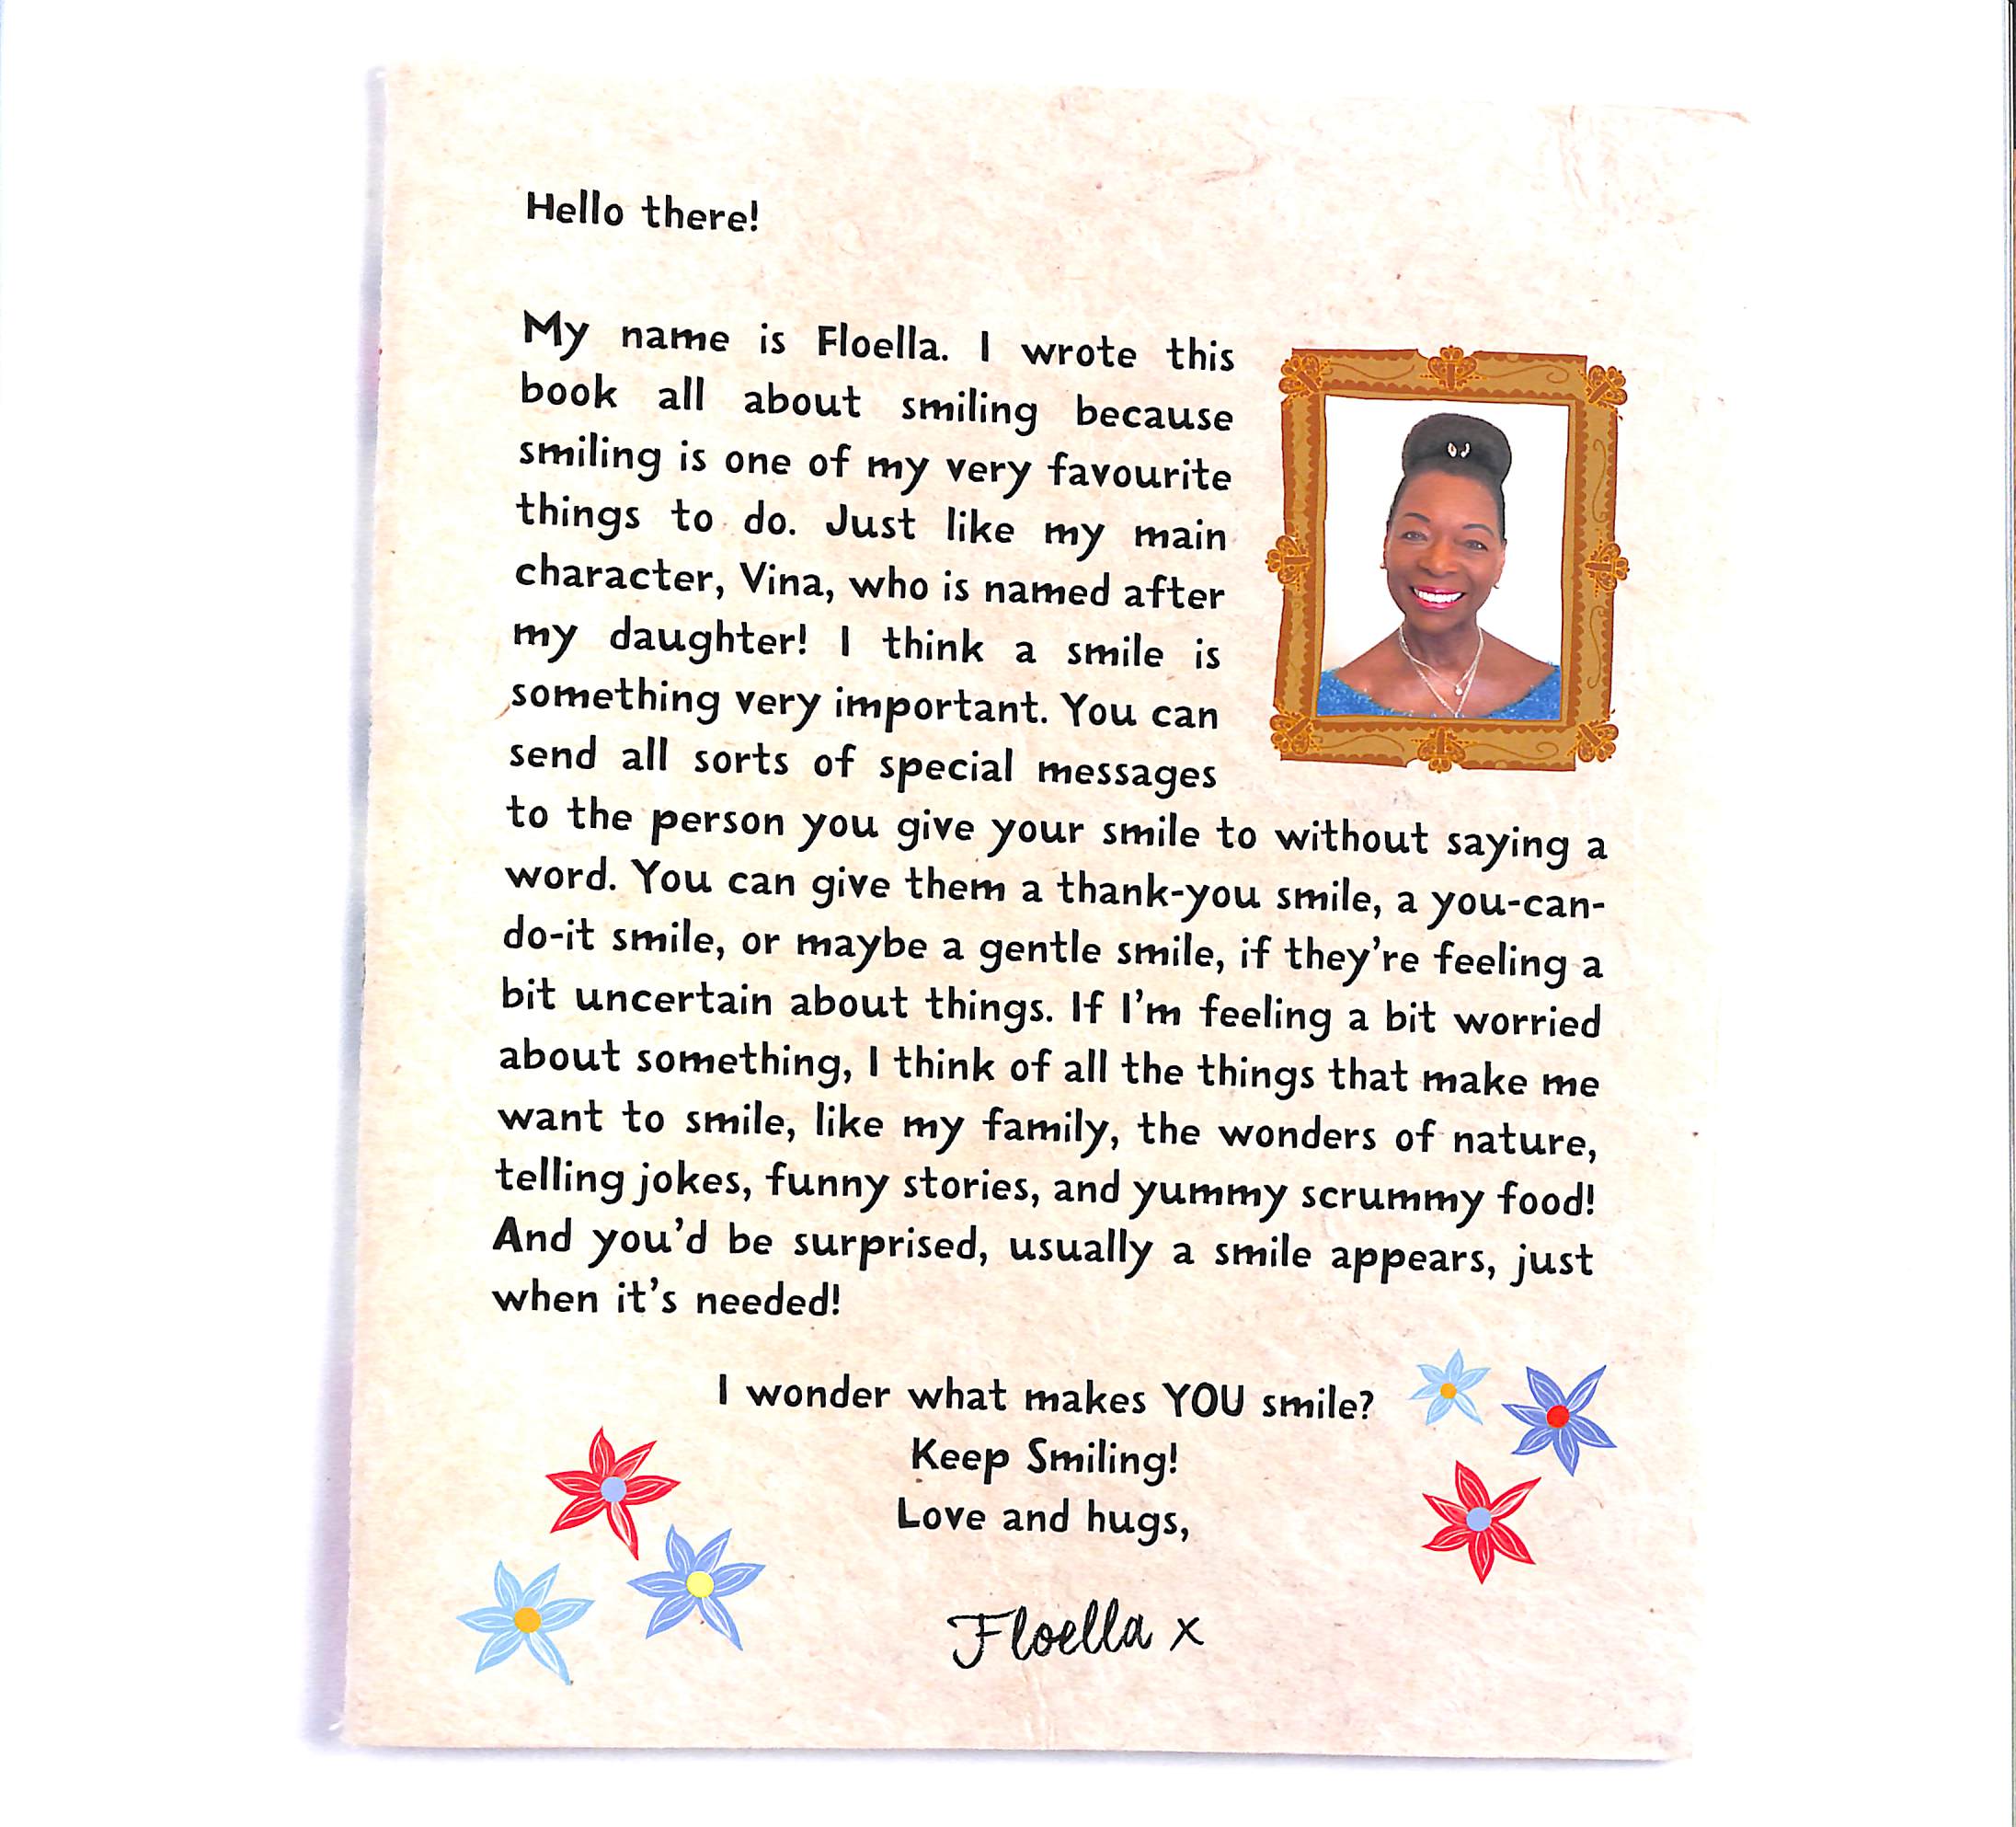 Hello there!
My name is Floella. I wrote this
book all about smiling because
smiling is one of my very favourite
things to do. Just like my main
character, Vina, who is named after
my daughter! I think a smile is
something very important. You can
send all sorts of special messages
to the person you give your smile to without saying a
word. You can give them a thank-you smile, a you-can-
do-it smile, or maybe a gentle smile, if they're feeling a
bit uncertain about things. If I'm feeling a bit worried
about something, I think of all the things that make me
want to smile, like my family, the wonders of nature,
telling jokes, funny stories, and yummy scrummy food!
And you'd be surprised, usually a smile appears, just
when it's needed!
I wonder what makes YOU smile?
Keep Smiling!
Love and hugs,
Floella x